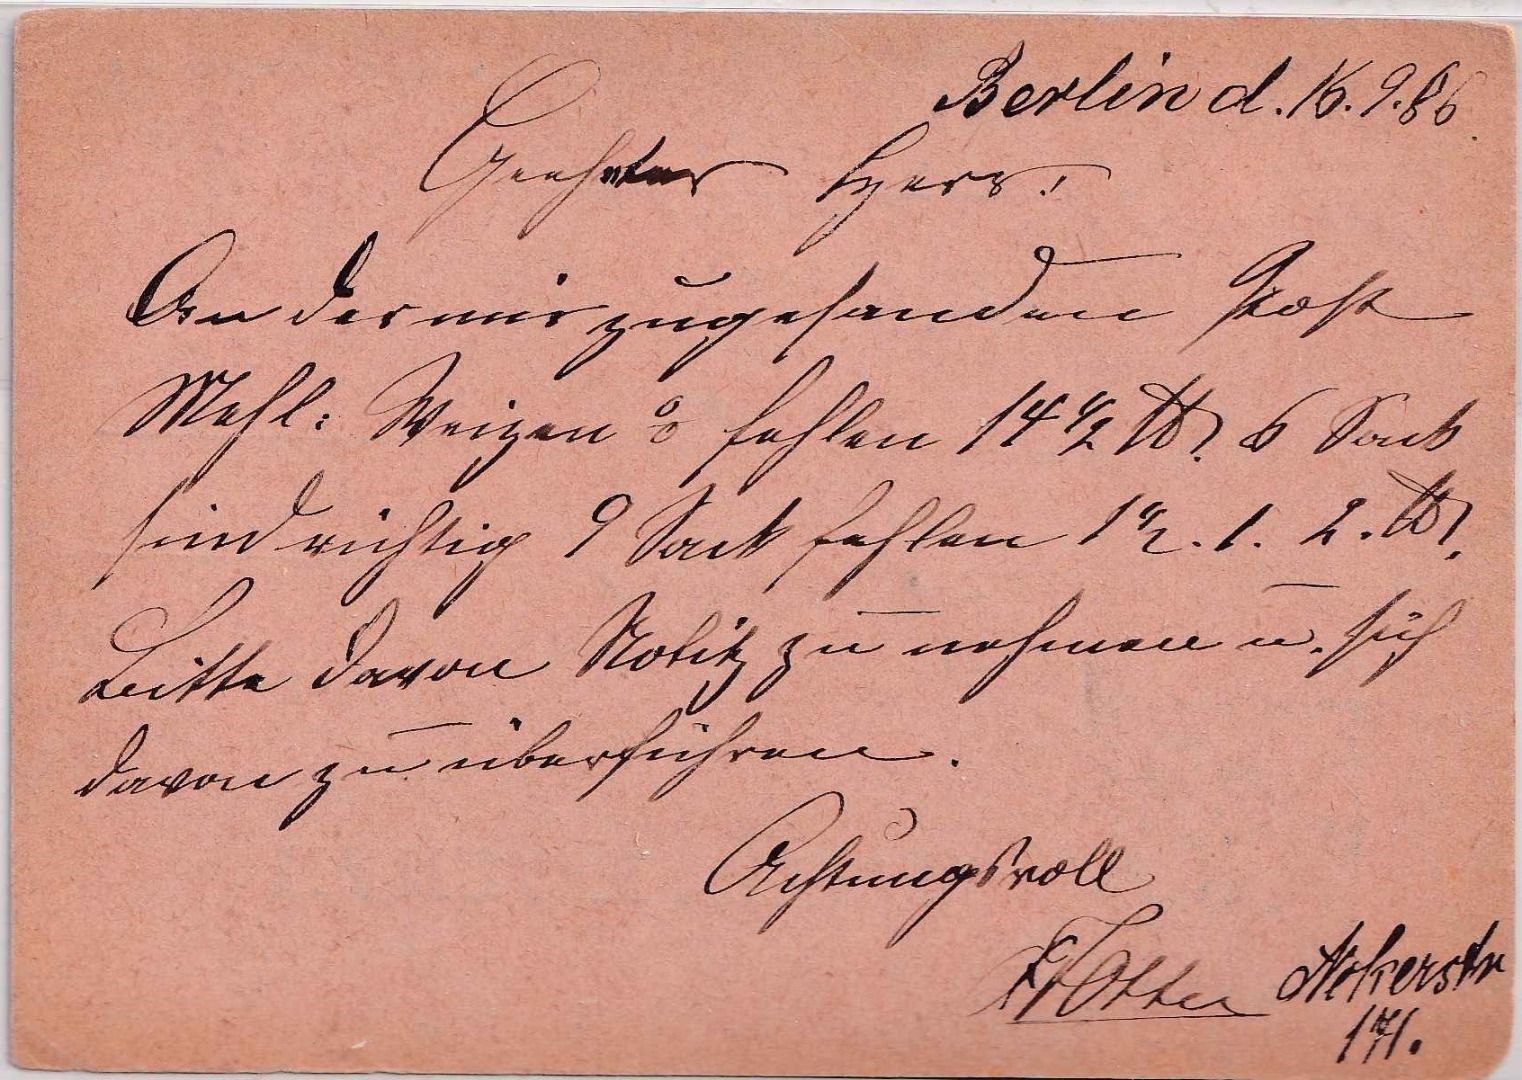 Berlin d. 16. 9. 86.
Geehrter Herr!
An der mir zugesandten Post
Mehl: Weizen 0 fehlen 14 1/2 ℔. 6 Sack
sind richtig 9 Sack fehlen 1 1/2. 1. 2. ℔.
Bitte davon Notitz zu nehmen u. sich
davon zu überführen.
Achtungsvoll
Otto Ackerstr
171.